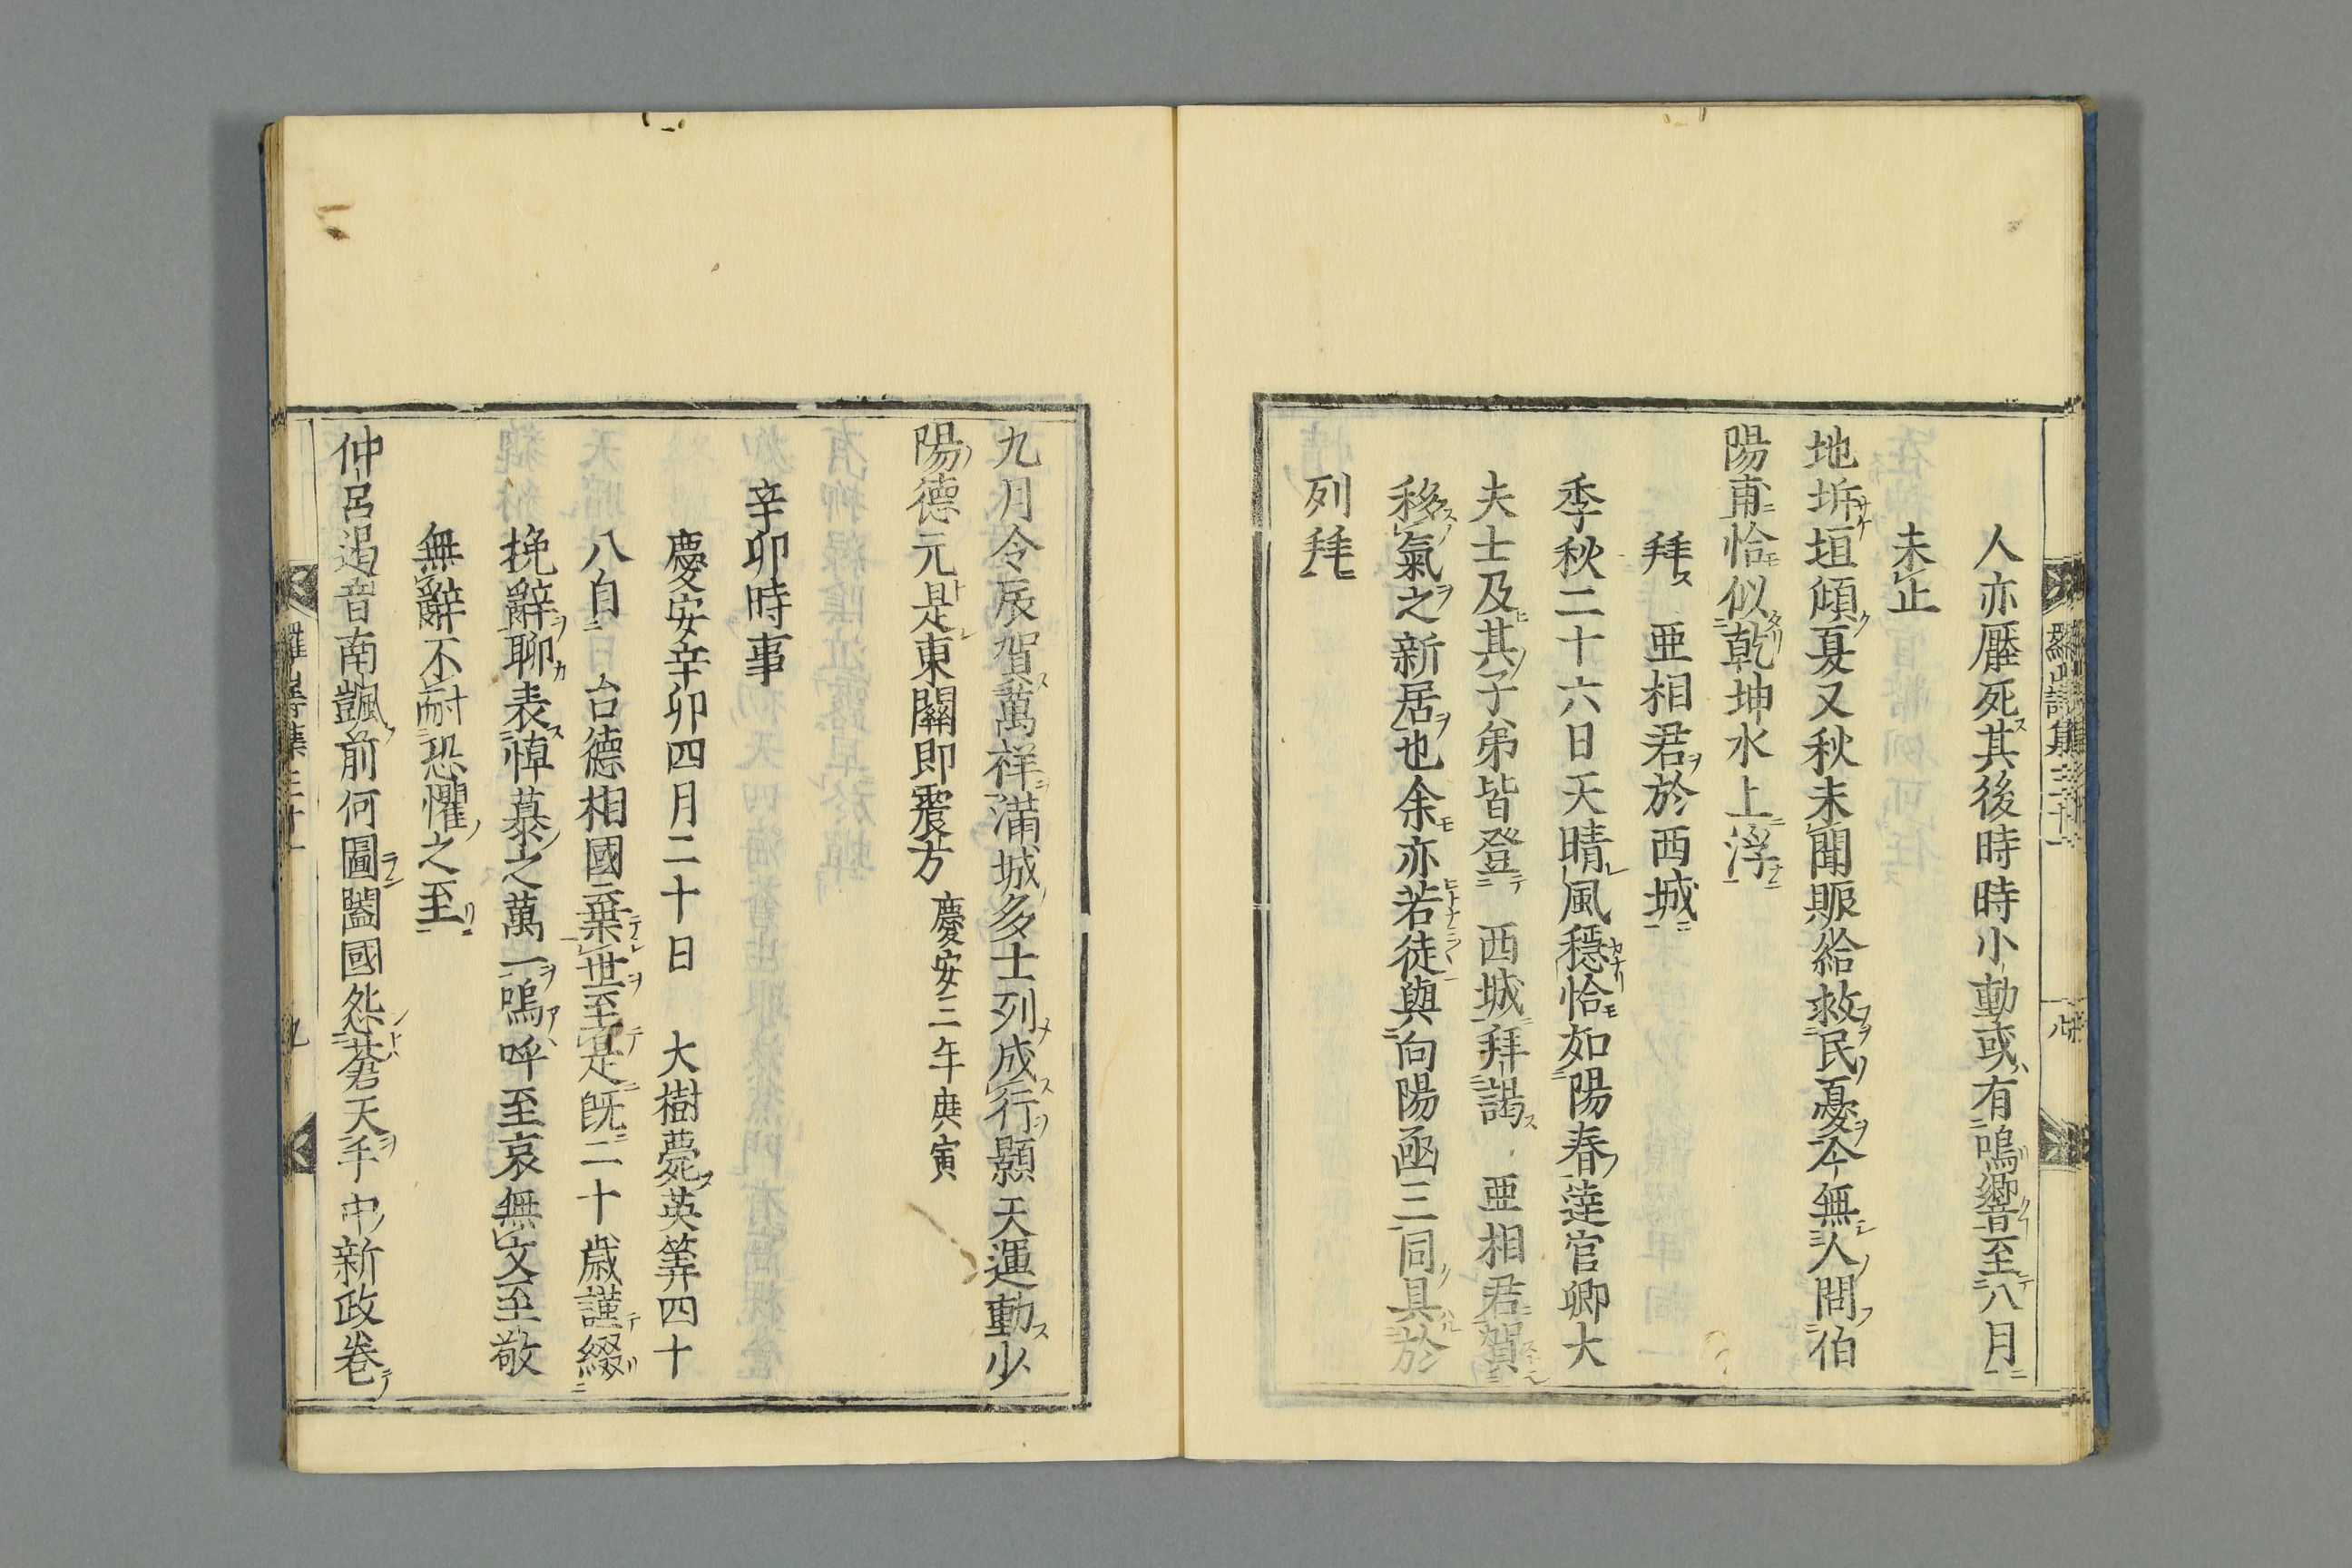 人亦壓死其後時時小動或有鳴響至八月
未止
地坼垣傾夏又秋未聞賑給救民憂今無人問伯
陽甫恰似乾坤水上浮
拜 亞相君於西城
季秋二十六日天晴風穩恰如陽春達官卿大
夫士及其子弟皆登 西城拜謁 亞相君賀
移氣之新居也余亦若徒與向陽函三同具於
列拜
九月令辰賀萬祥滿城多士列成行顯天運動少
陽德元是東關即震方 慶安三年庚寅
辛卯時事
慶安辛卯四月二十日 大樹薨英筭四十
八自 台德相國棄世至是既二十歲謹綴
挽辭聊表悼慕之萬一嗚呼至哀無文至敬
無辭不耐恐懼之至
仲呂遏音南颽前何圖闔國怨蒼天手中新政卷
羅山詩集
八
九